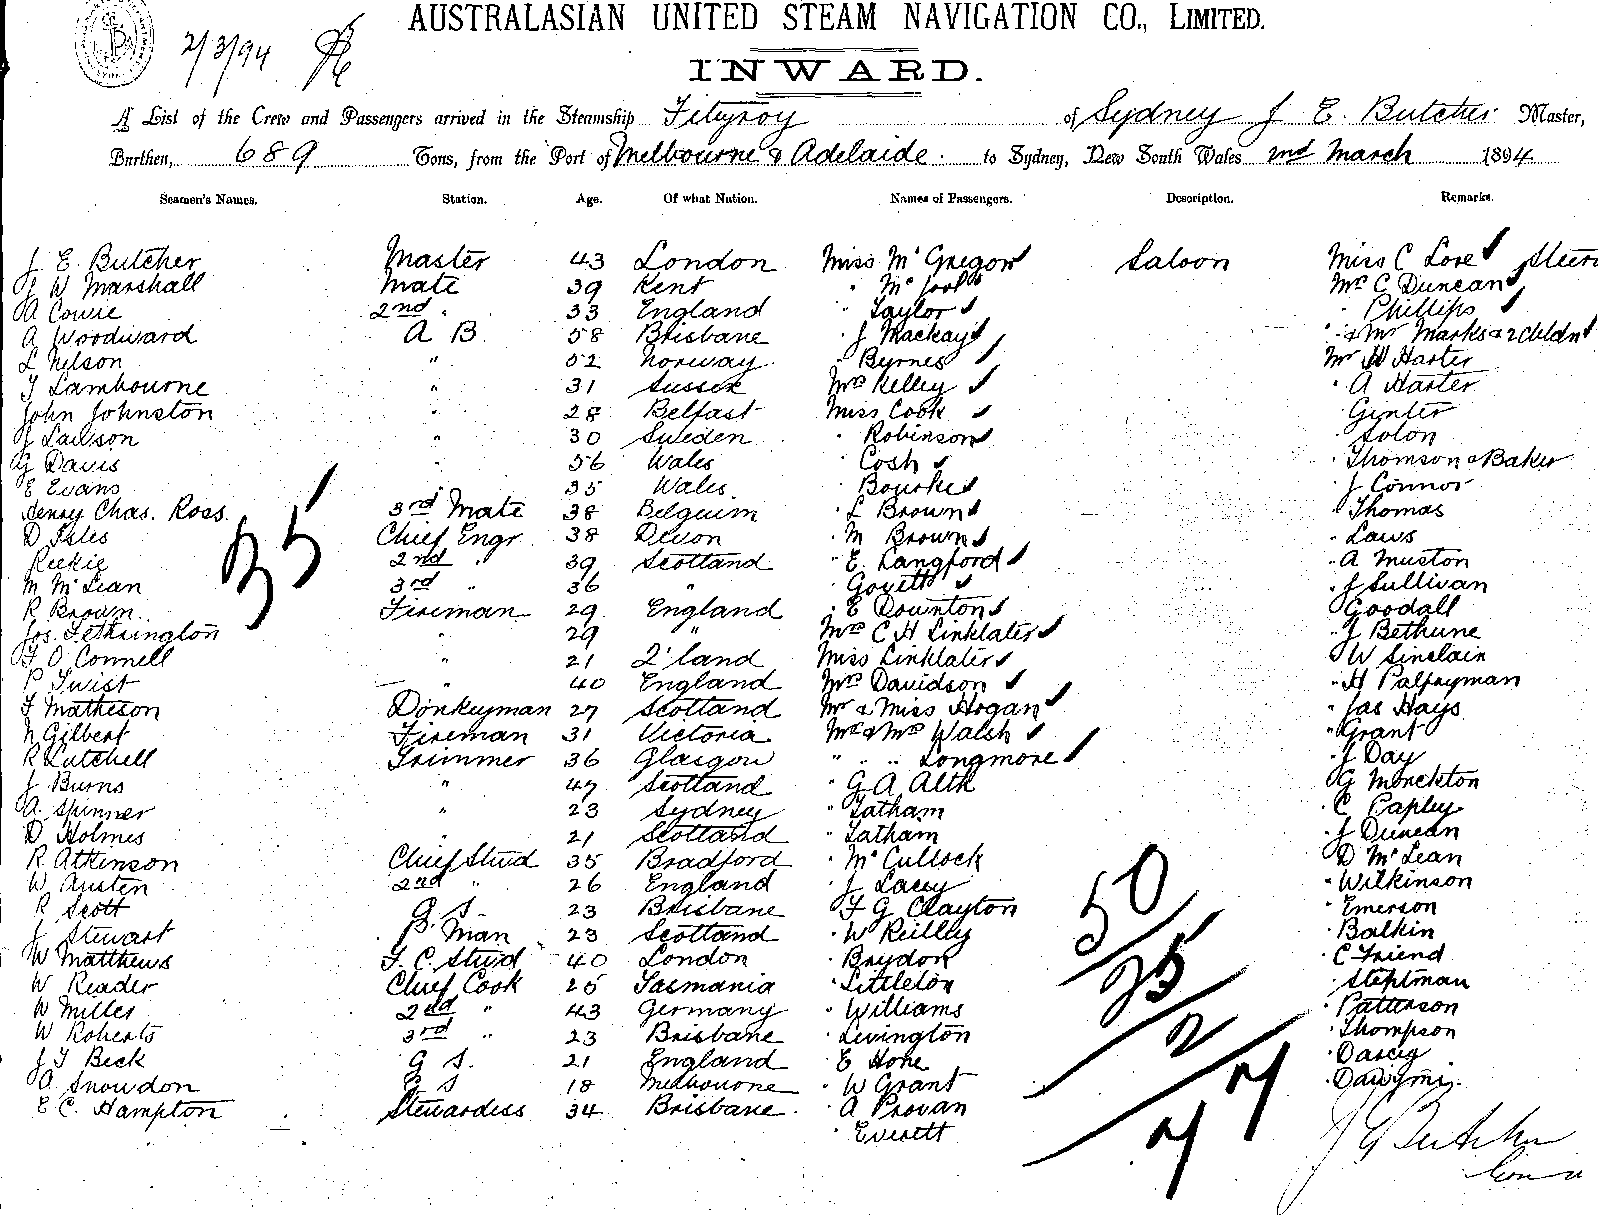 AUSTRALASIAN UNITED STEAM NAVIGATION CO., LIMITED.
2/3/94
INWARD.
A List of the Crew and Passengers arrived in the Steamship Fitzroy of Sydney J E. Butcher Master,
Burthen, 689 Tons, from the Port of Melbourne & Adelaide. to Sydney, New South Wales 2nd March 1894
Seamen's Names. Station. Age. Of what Nation. Names of Passengers. Description. Remarks.
J. E. Butcher Master 43 London Miss Mc Gregor Saloon Miss C Love
W Marshall Mate 39 Kent " Mrs C Duncan
A Cowie 2nd " 33 England " Taylor " Phillips
A Woodward A B 58 Brisbane " J Mackay " & Mr Marks & 2 childn
L Nelson " 52 Norway " Byrnes Mr W Harter
T Lambourne " 31 Sussex Mrs Kelley " A Harter
John Johnston " 28 Belfast Miss Cook " Ginter
J Lawson " 30 Sweden " Robinson " Solon
G Davis " 56 Wales " Cosh " Thomson & Baker
E Evans 35 Wales. " Bourke " J Connor
Henry Chas. Ross. 3rd Mate 38 Belguim " L Brown " Thomas
D Isles Chief Engr 38 Devon " M Brown " Laws
Reekie 2nd " 39 Scotland " E. Langford " A Muston
M Mc Lean 3rd " 36 " " Goyett " J Sullivan
R Brown Fireman 29 England " E Downton " Goodall
Jos. Fetherington " 29 " Mrs C H Linklater " J Bethune
O Connell " 21 Q'land Miss Linklater " W Sinclair
P Twist " 40 England Mrs Davidson " H Palfryman
F Matheson Donkeyman 27 Scotland Mr & Miss Hogan " Jas Hays
N Gilbert Fireman 31 Victoria Mr & Mrs Walsh " Grant
R Latchell Trimmer 36 Glasgow " " " Longmore " J Day
J Burns " 47 Scotland " G A Altk " G Monckton
A Spinner " 23 Sydney " Tatham " C Papley
D Holmes " 21 Scotland " Latham " J Duncan
R Atkinson Chief Stud 35 Bradford " Mc Cullock " D Mc Lean
W Austen 2nd " 26 England " J Lacey " Wilkinson
R Scott G. S. 23 Brisbane " F G Clayton " Emerson
J Stewart P. Man 23 Scotland " W Reilley " Balkin
W Matthews F. C. Stud 40 London " Brydon " C Friend
W Reader Chief Cook 25 Tasmania " Littleton " Steptman
W Miller 2nd " 43 Germany " Williams " Patterson
W Roberts 3rd " 23 Brisbane " Livington " Thompson
J T Beck G S. 21 England " E Hone " Darcey
A. Snowdon S 18 Melbourne " W Grant
E C. Hampton Stewardess 34 Brisbane. " A Provan
" Everett
35
50
25
2
77
J E Butcher